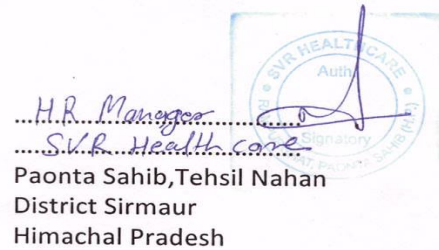 SVR HEALTHCARE
Auth.
Signatory
PAONTA SAHIB (H.P.)
HR Manager
SVR Health care
Paonta Sahib,Tehsil Nahan
District Sirmaur
Himachal Pradesh